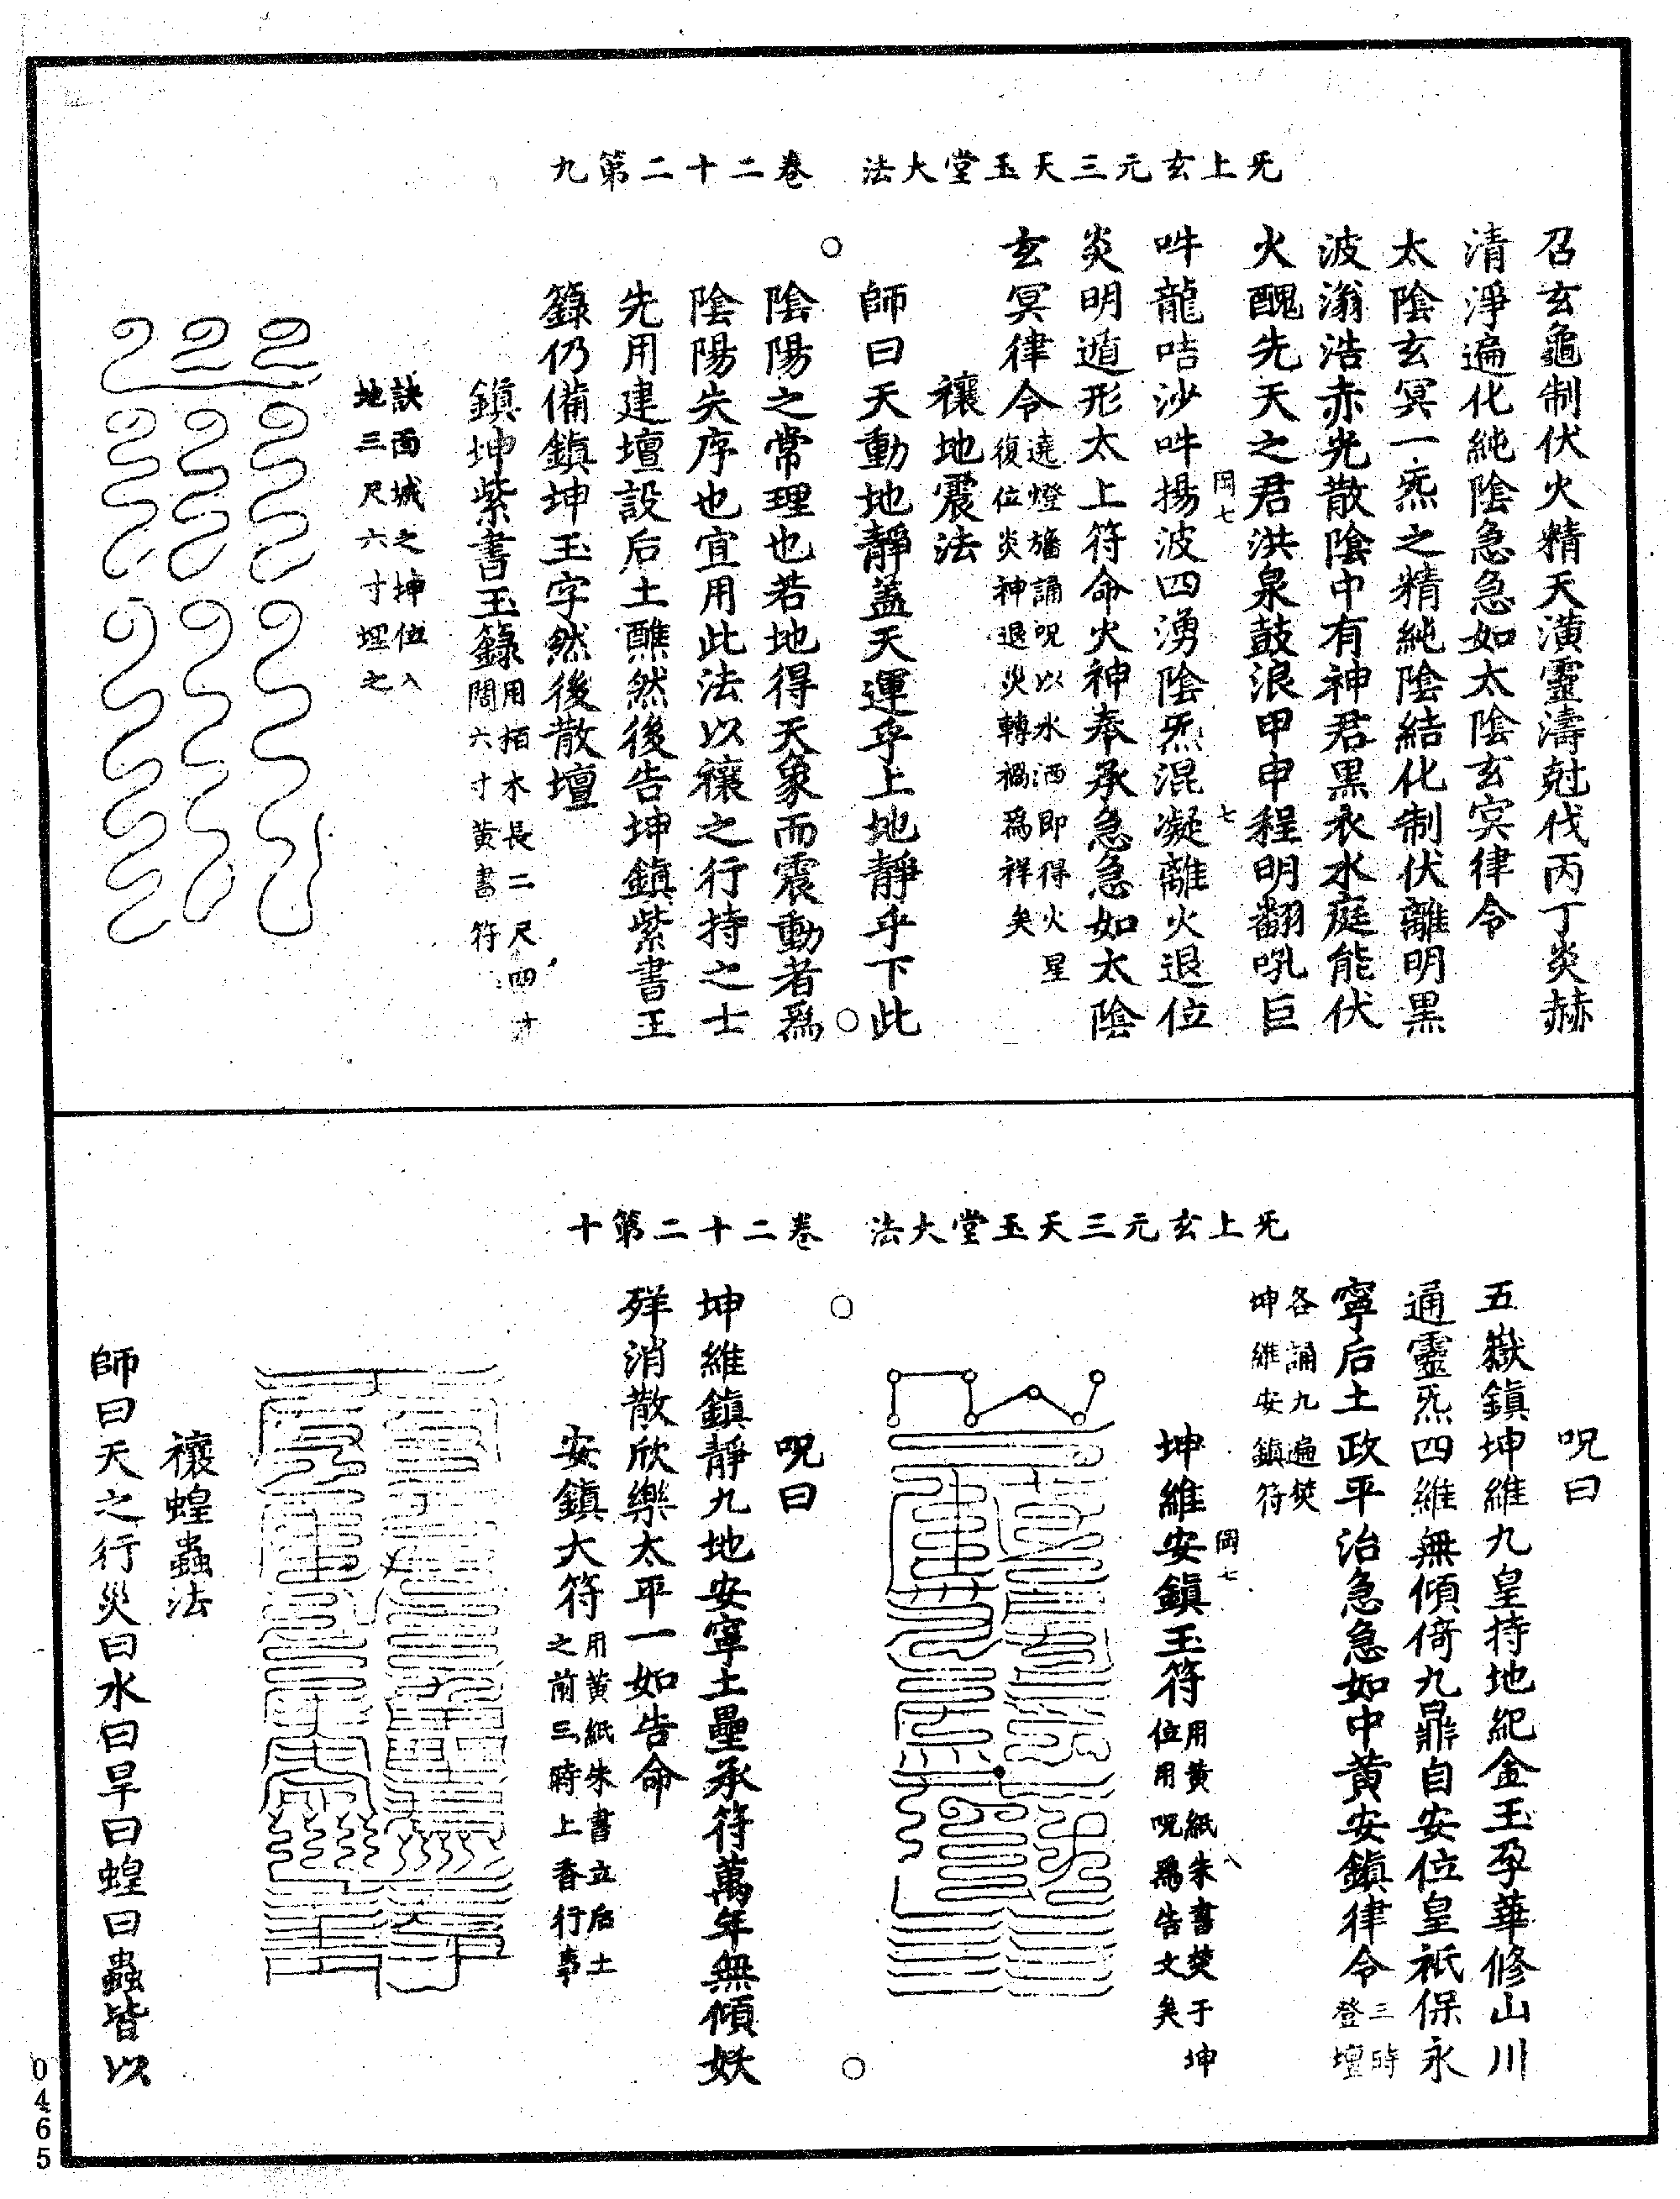 九第二十二卷　法大堂玉天三元玄上旡
召玄龜制伏火精天潢靈濤尅伐丙丁炎赫
清淨遍化純陰急急如太陰玄冥律令
太陰玄冥一炁之精純陰結化制伏離明黑
波滃浩赤光散陰中有神君黑衣水庭能伏
火醜先天之君洪泉鼓浪甲申程明翻吼巨
岡七　七
吽龍咭沙吽揚波四湧陰炁混凝離火退位
炎明遁形太上符命火神奉承急急如太陰
玄冥律令遶燈旛誦呪以水洒即得火星
復位炎神退災轉禍爲祥矣
禳地震法
師曰天動地靜蓋天運乎上地靜乎下此
陰陽之常理也若地得天象而震動者爲
陰陽失序也宜用此法以禳之行持之士
先用建壇設后土醮然後告坤鎮紫書玉
籙仍備鎮坤玉字然後散壇
鎮坤紫書玉籙用栢木長二尺四寸
闊六寸黃書符
訣面城之坤位入
地三尺六寸埋之
十第二十二卷　法大堂玉天三元玄上旡
呪曰
五嶽鎮坤維九皇持地紀金玉孕華修山川
通靈炁四維無傾倚九鼎自安位皇祇保永
寧后土政平治急急如中黃安鎮律令三時
登壇
各誦九遍焚
坤維安鎮符
岡七　八
坤維安鎮玉符用黃紙朱書焚于坤
位用呪爲告文矣
呪曰
坤維鎮靜九地安寧土壘承符萬年無傾妖
殍消散欣樂太平一如告命
安鎮大符用黃紙朱書立后土
之前三時上香行事
禳蝗蟲法
師曰天之行災曰水曰旱曰蝗曰蟲皆以
0465